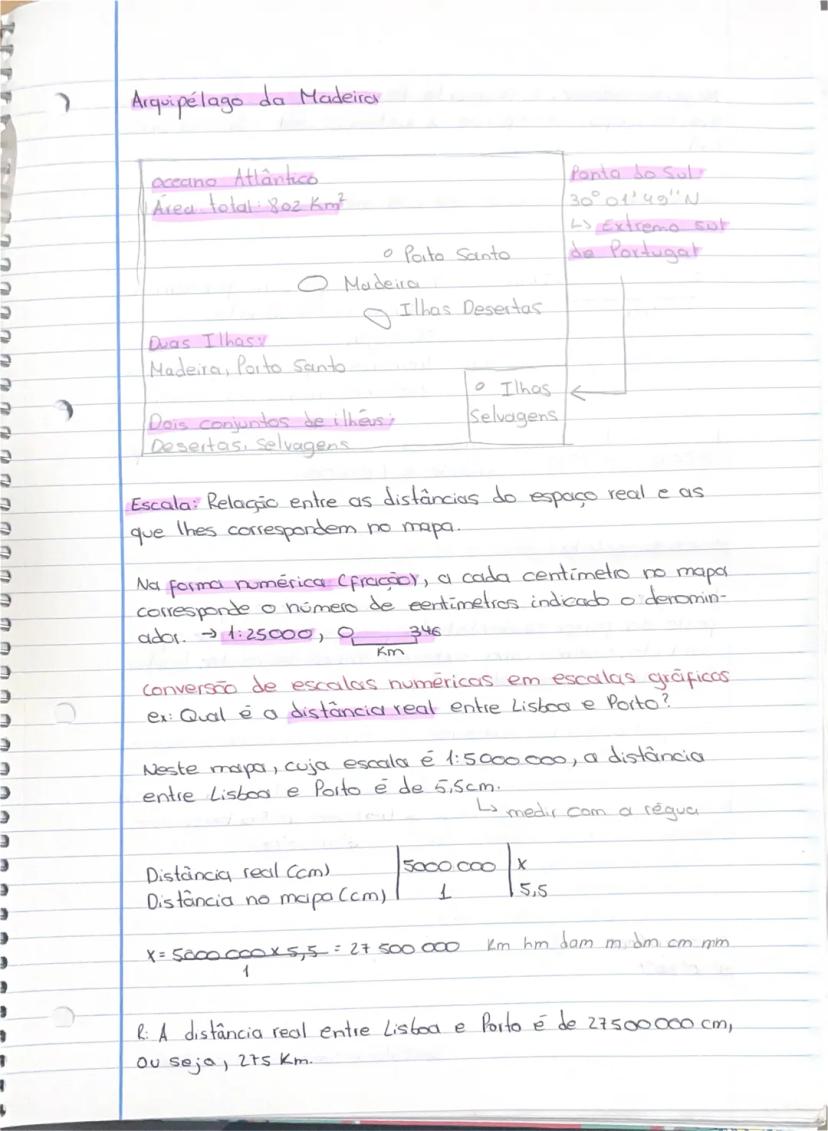 Arquipélago da Madeira
oceano Atlântico
Área total: 802 Km²
Ponta do Sul:
30° 01' 49'' N
↳ Extremo sul
de Portugal
o Porto Santo
Madeira
Ilhas Desertas
Duas Ilhas:
Madeira, Porto Santo
Dois conjuntos de ilhéus:
Desertas, Selvagens
o Ilhas
Selvagens
Escala: Relação entre as distâncias do espaço real e as
que lhes correspondem no mapa.
Na forma numérica (fração), a cada centímetro no mapa
corresponde o número de centímetros indicado o denomin-
ador. → 1:25000, 0 346
Km
conversão de escalas numéricas em escalas gráficas
ex: Qual é a distância real entre Lisboa e Porto?
Neste mapa, cuja escala é 1:5000.000, a distância
entre Lisboa e Porto é de 5,5cm.
↳ medir com a régua
Distância real (cm) | 5000.000 | x
Distância no mapa (cm) | 1 | 5,5
x = 5000.000 x 5,5 = 27 500 000 Km hm dam m dm cm mm
1
R: A distância real entre Lisboa e Porto é de 27500000 cm,
ou seja, 275 Km.